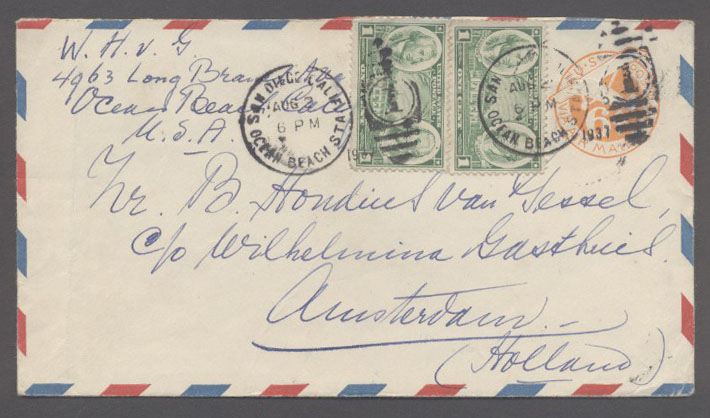 W. H. v. G.
4963 Long Branch Ave
Ocean Beach Cal.
U.S.A.
SAN DIEGO, CALIF.
AUG 2
6 PM
OCEAN BEACH STA.
1937
1
1
SAN
AUG 2
6 PM
OCEAN BEACH STA.
1937
U.S.
6
MAIL
Zr. B. Hondius van Gessel,
c/o Wilhelmina Gasthuis.
Amsterdam —
(Holland)